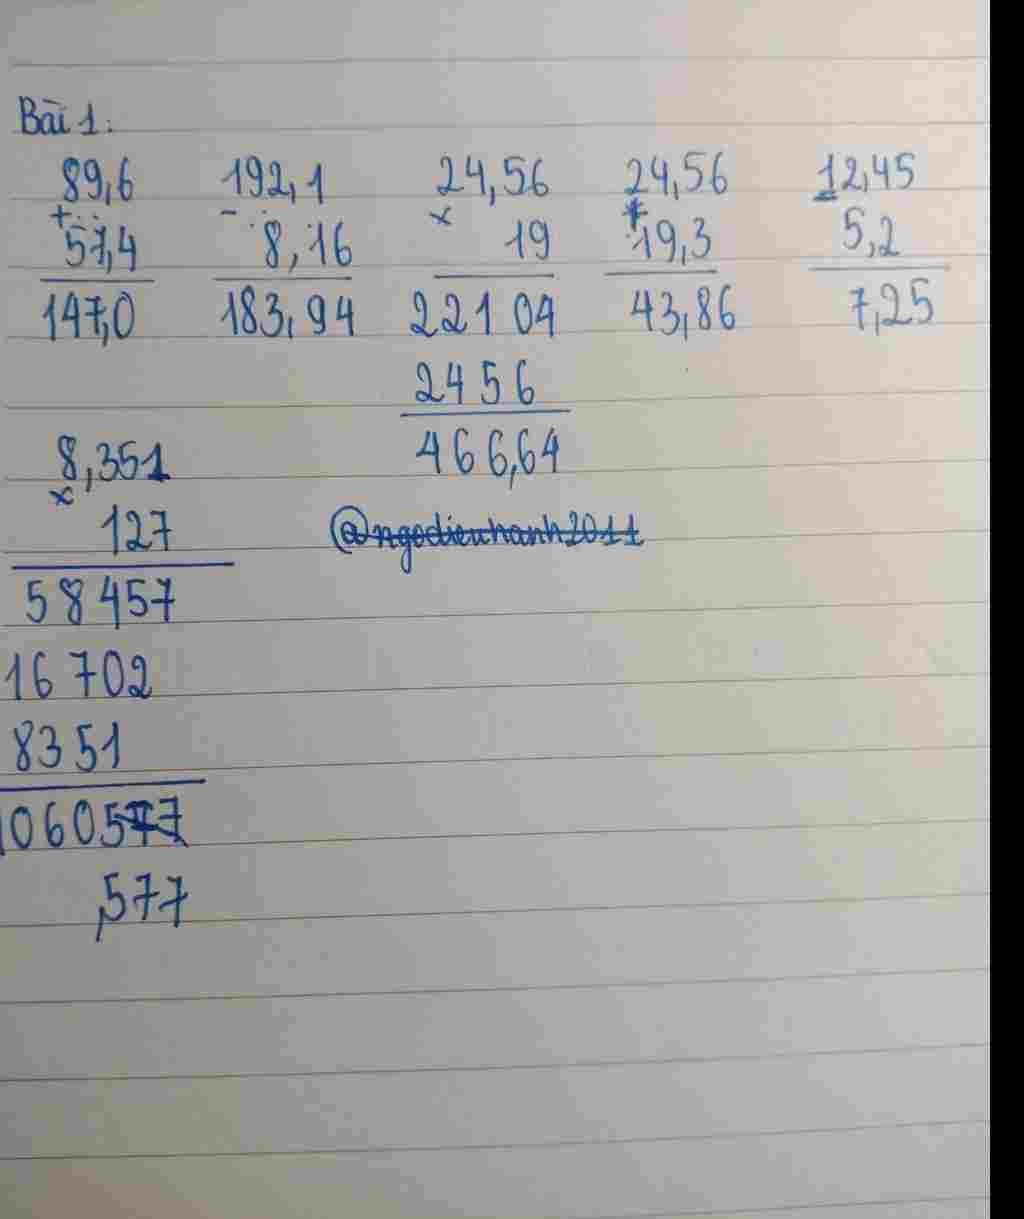 Bài 1:
89,6 192,1 24,56 24,56 12,45
+ - x + -
57,4 8,16 19 19,3 5,2
147,0 183,94 22104 43,86 7,25
2456
8,351 466,64
x
127 @ngodieuhanh2011
58457
16702
8351
1060577
,577